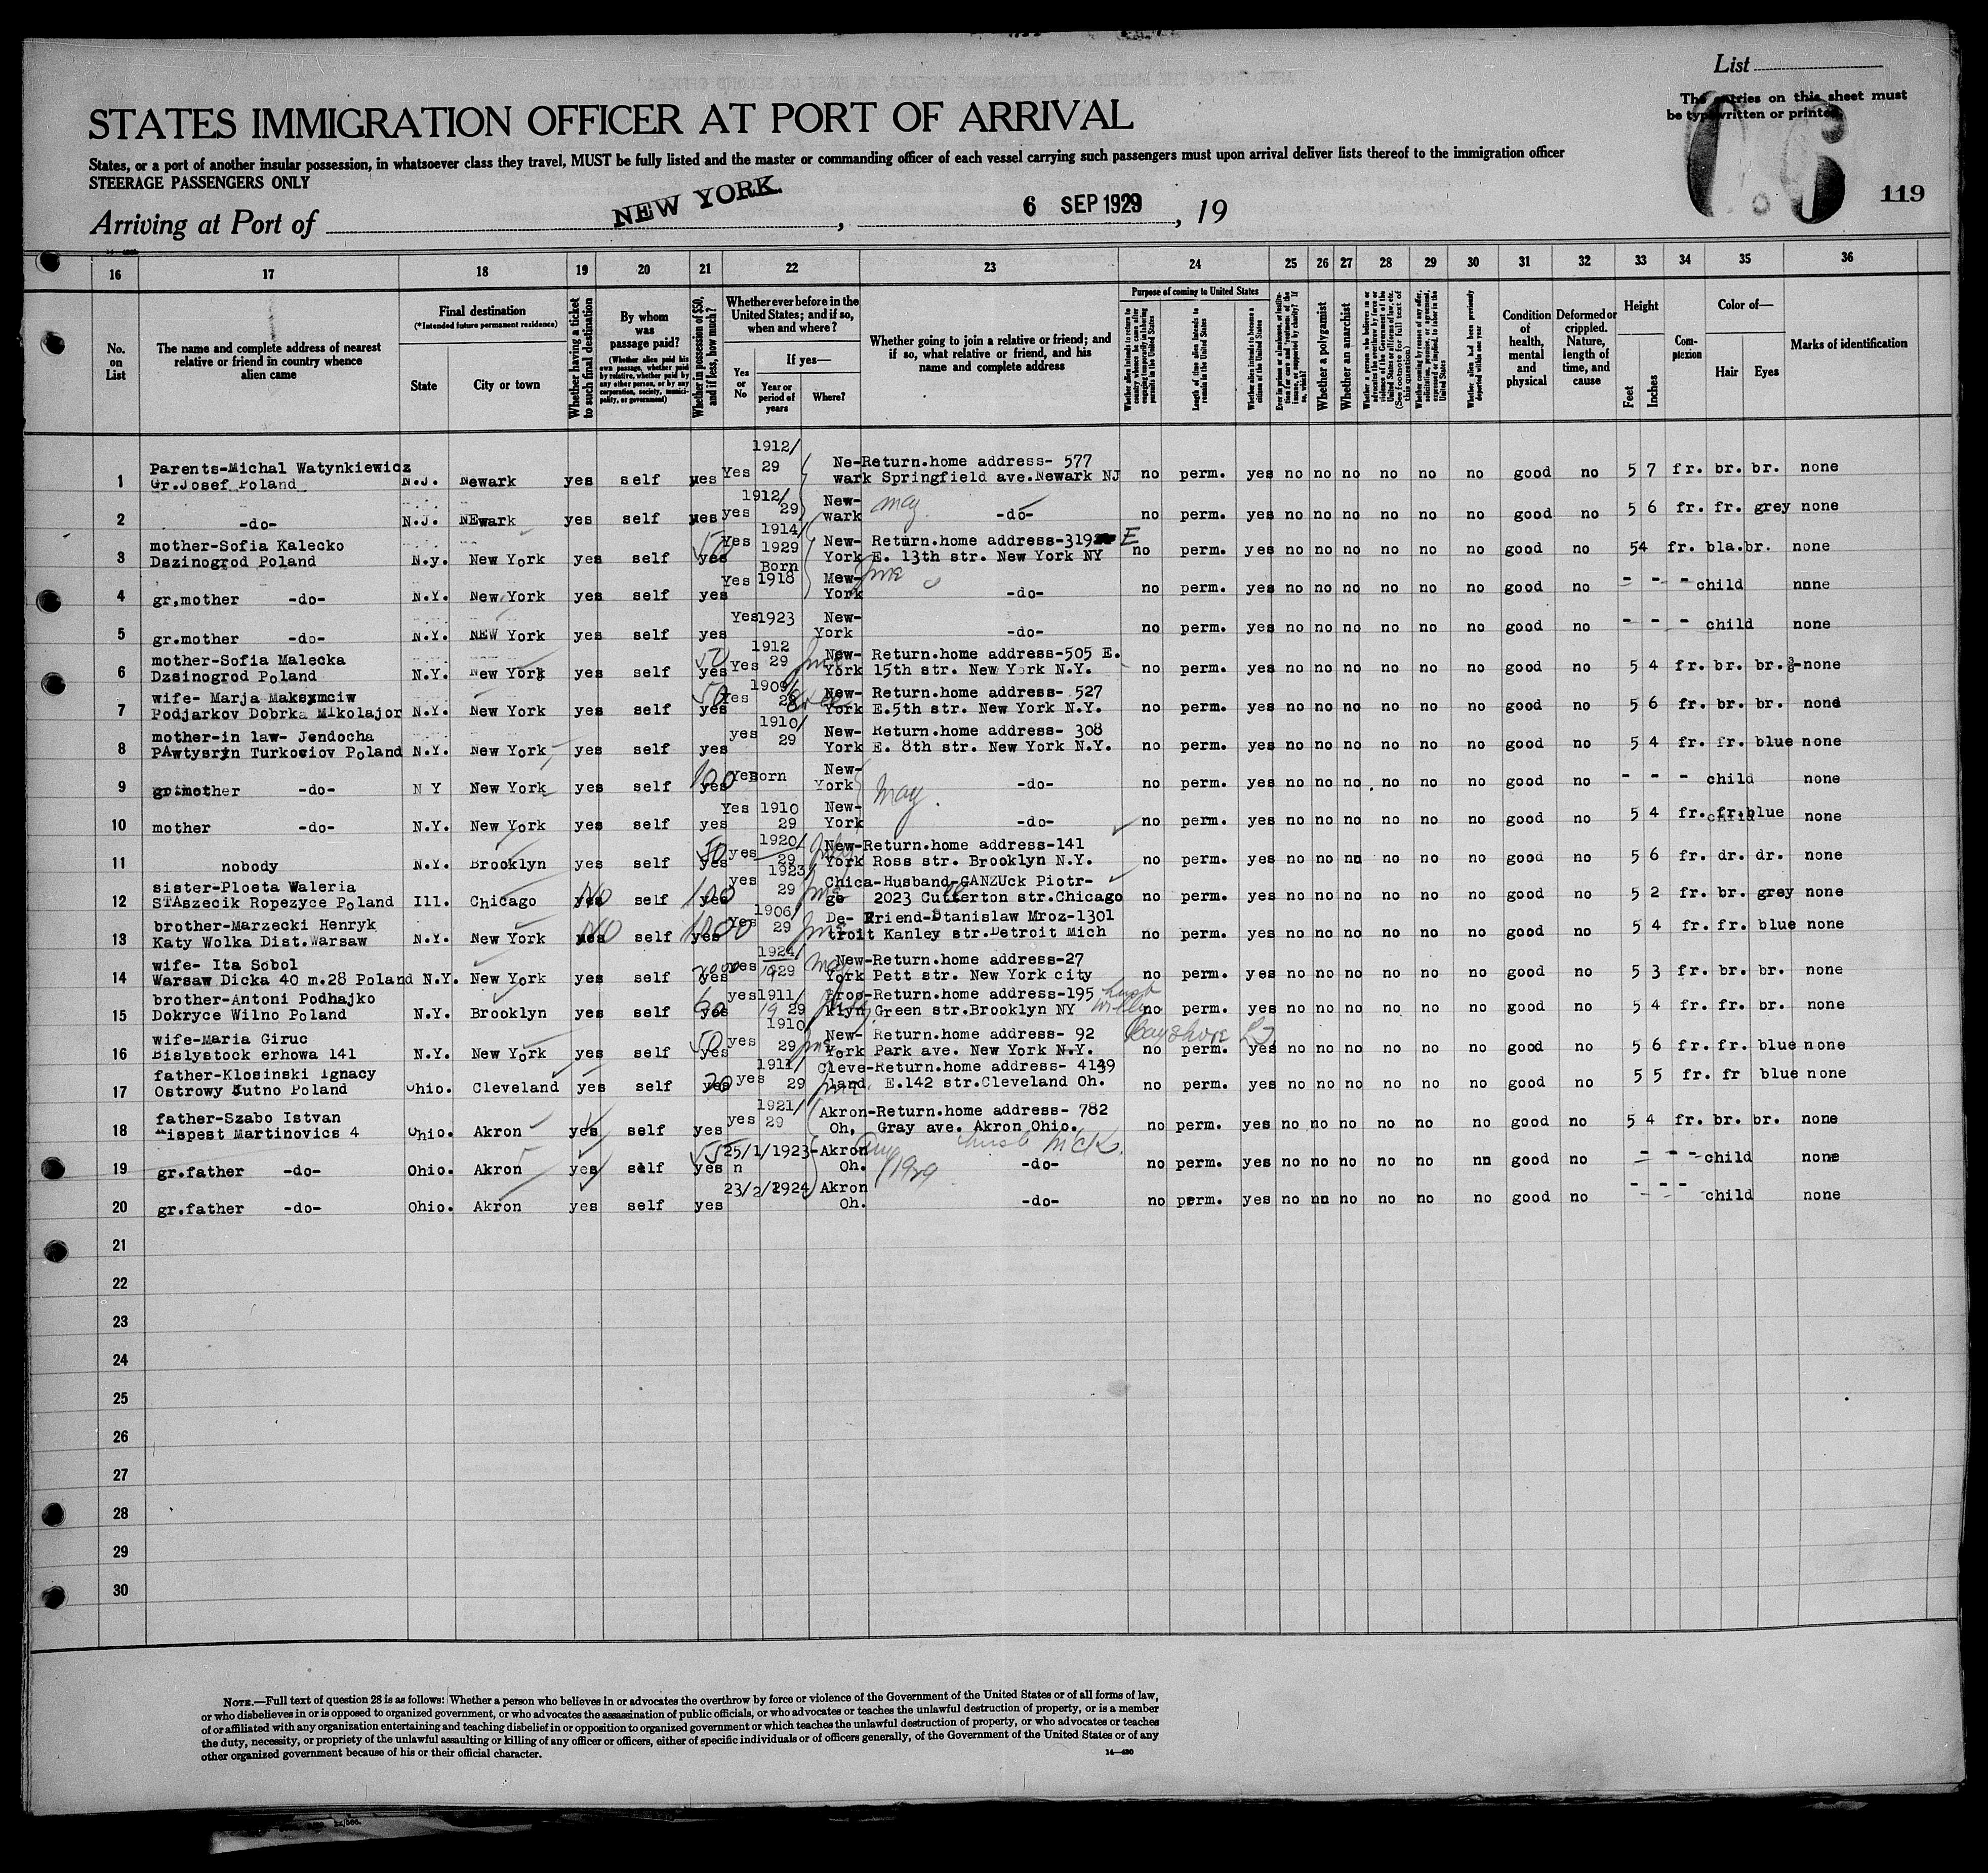 List
The entries on this sheet must
be typewritten or printed.
STATES IMMIGRATION OFFICER AT PORT OF ARRIVAL
States, or a port of another insular possession, in whatsoever class they travel, MUST be fully listed and the master or commanding officer of each vessel carrying such passengers must upon arrival deliver lists thereof to the immigration officer
STEERAGE PASSENGERS ONLY
119
Arriving at Port of NEW YORK, 6 SEP 1929, 19
16 17 18 19 20 21 22 23 24 25 26 27 28 29 30 31 32 33 34 35 36
No. on List
The name and complete address of nearest relative or friend in country whence alien came
Final destination
(*Intended future permanent residence)
State City or town
Whether having ticket to such final destination
By whom was passage paid?
(Whether alien paid his own passage, whether paid by relative, whether paid by any other person, or by any corporation, society, municipality, or government)
Whether in possession of $50, and if less, how much?
Whether ever before in the United States; and if so, when and where?
Yes or No
If yes—
Year or period of years
Where?
Whether going to join a relative or friend; and if so, what relative or friend, and his name and complete address
Purpose of coming to United States
Whether alien intends to return to country whence he came after engaging temporarily in laboring pursuits in the United States
Length of time alien intends to remain in the United States
Whether alien intends to become a citizen of the United States
Ever in prison or almshouse, or institution for care and treatment of the insane, or supported by charity? If so, which?
Whether a polygamist
Whether an anarchist
Whether a person who believes in or advocates the overthrow by force or violence of the Government of the United States or all forms of law, etc. (See footnote for full text of this question)
Whether coming by reason of any offer, solicitation, promise, or agreement, expressed or implied, to labor in the United States
Whether alien had been previously deported within one year
Condition of health, mental and physical
Deformed or crippled. Nature, length of time, and cause
Height
Feet Inches
Complexion
Color of—
Hair Eyes
Marks of identification
1 Parents-Michal Watynkiewicz 1912/ Ne-Return.home address- 577
Gr.Josef Poland N.J. Newark yes self yes Yes 29 wark Springfield ave.Newark NJ no perm. yes no no no no no no good no 5 7 fr. br. br. none
2 -do- N.J. NEwark yes self yes yes 1912/ 29 New-wark may -do- no perm. yes no no no no no no good no 5 6 fr. fr. grey none
3 mother-Sofia Kalecko Yes 1914/ New- Return.home address-319 E
Dszinogrod Poland N.y. New York yes self yes 50 1929 York E. 13th str. New York NY no perm. yes no no no no no no good no 54 fr. bla.br. none
4 gr,mother -do- N.Y. New York yes self yes Yes Born 1918 Mew-York June -do- no perm. yes no no no no no no good no - - - child nnne
5 gr.mother -do- N.Y. NEW York yes self yes Yes1923 New-York -do- no perm. yes no no no no no no good no - - - child none
6 mother-Sofia Malecka 1912 New- Return.home address-505 E.
Dzsinogrod Poland N.Y. New York yes self yes 50 Yes 29 June York 15th str. New York N.Y. no perm. yes no no no no no no good no 5 4 fr. br. br. none
7 wife- Marja Maksymciw 1909/ New- Return.home address- 527
Podjarkov Dobrka MIkolajor N.Y. New York yes self yes 50 Yes York E.5th str. New York N.Y. no perm. yes no no no no no no good no 5 6 fr. br. br. none
8 mother-in law- Jendocha 1910/ New- Return.home address- 308
PAwtysryn Turkociov Poland N.Y. New York yes self yes yes 29 York E. 8th str. New York N.Y. no perm. yes no no no no no no good no 5 4 fr. fr. blue none
9 gr.mother -do- N Y New York yes self yes 100 Yes Born New-York May -do- no perm. yes no no no no no no good no - - - child none
10 mother -do- N.Y. New York yes self yes Yes 1910 29 New-York -do- no perm. yes no no no no no no good no 5 4 fr. fr.blue none
11 nobody N.Y. Brooklyn yes self yes 50 yes 1920/ 29 July New-Return.home address-141
York Ross str. Brooklyn N.Y. no perm. yes no no nn no no no good no 5 6 fr. dr. dr. none
12 sister-Ploeta Waleria 1923/ Chica-Husband-GANZUck Piotr-
STAszecik Ropezyce Poland Ill. Chicago yes NO self yes 100 yes 29 June go 2023 Cutterton str.Chicago no perm. yes no no no no no no good no 5 2 fr. br. grey none
13 brother-Marzecki Henryk 1906/ De- Friend-Stanislaw Mroz-1301
Katy Wolka Dist.Warsaw N.Y. New York yes NO self yes Yes 29 June troit Kanley str.Detroit Mich no perm. yes no no no no no no good no 5 4 fr. fr. blue none
14 wife- Ita Sobol 1924/ New-Return.home address-27
Warsaw Dicka 40 m.28 Poland N.Y. New York yes self yes yes 1929 May York Pett str. New York city no perm. yes no no no no no no good no 5 3 fr. br. br. none
15 brother-Antoni Podhajko yes1911/ Broo-Return.home address-195
Dokryce Wilno Poland N.Y. Brooklyn yes self yes 29 klyn Green str.Brooklyn NY no perm. yes no no no no no no good no 5 4 fr. fr. br. none
16 wife-Maria Giruc 1910/ New- Return.home address- 92 Bayshore L I
Bislystock erhowa 141 N.Y. New York yes self yes 50 yes 29 June York Park ave. New York N.Y. no perm. yes no no no no no no good no 5 6 fr. fr. blue none
17 father-Klosinski Ignacy 1911/ Cleve-Return.home address- 4139
Ostrowy Kutno Poland Ohio. Cleveland yes self yes yes 29 June land, E.142 str.Cleveland Oh. no perm. yes no no no no no no good no 5 5 fr. fr blue none
18 father-Szabo Istvan 1921/ Akron-Return.home address- 782
Kispest Martinovics 4 Ohio. Akron yes self yes yes 29 Oh, Gray ave. Akron Ohio. no perm. yes no no no no no no good no 5 4 fr. br. br. none
19 gr.father -do- Ohio. Akron yes self yes n 25/1/1923-Akron Oh. Aug 1929 -do- no perm. yes no no no no no nn good no - - - child none
20 gr.father -do- Ohio. Akron yes self yes 23/2/1924 Akron Oh. -do- no perm. yes no nn no no no no good no - - - child none
21
22
23
24
25
26
27
28
29
30
NOTE.—Full text of question 28 is as follows: Whether a person who believes in or advocates the overthrow by force or violence of the Government of the United States or of all forms of law,
or who disbelieves in or is opposed to organized government, or who advocates the assassination of public officials, or who advocates or teaches the unlawful destruction of property, or is a member
of or affiliated with any organization entertaining and teaching disbelief in or opposition to organized government or which teaches the unlawful destruction of property, or who advocates or teaches
the duty, necessity, or propriety of the unlawful assaulting or killing of any officer or officers, either of specific individuals or of officers generally, of the Government of the United States or of any
other organized government because of his or their official character.
14—430